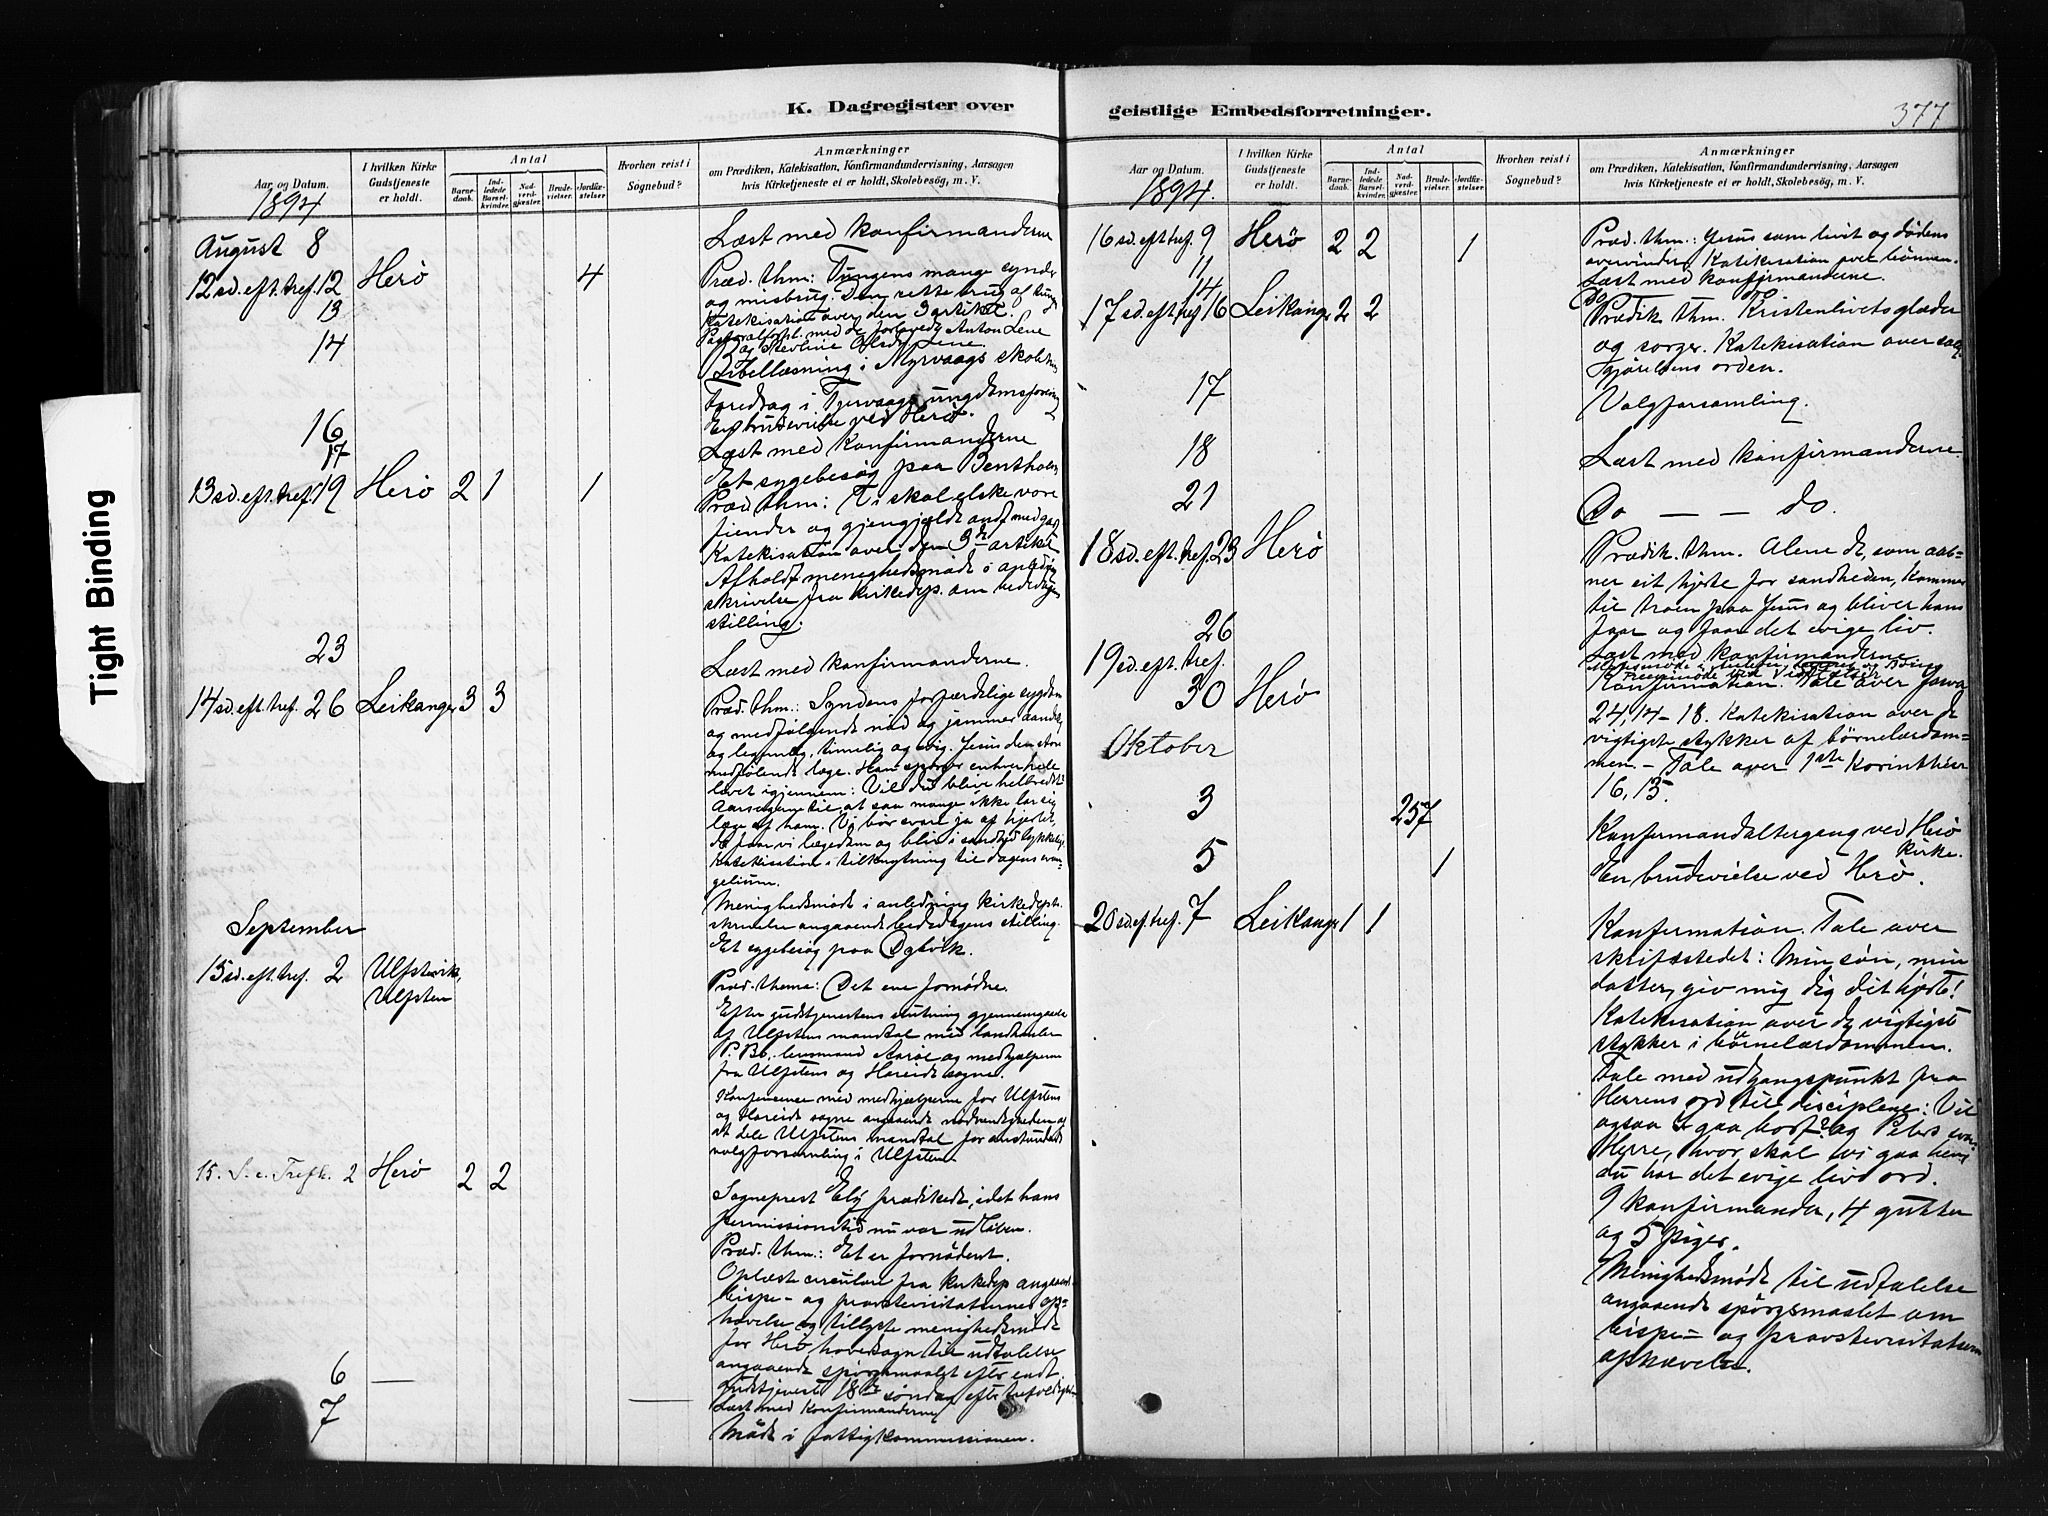 K. Dagregister over
Aar og Datum.
I hvilken Kirke Gudstjeneste er holdt.
Antal
Barne-daab.
Ind-ledede Barsel-kvinder.
Nad-verd-gjæster.
Brude-vielser.
Jordfæ-stelser
Hvorhen reist i Sognebud?
Anmærkninger
om Prædiken, Katekisation, Konfirmandundervisning, Aarsagen
hvis Kirketjeneste ei er holdt, Skolebesøg, m. V.
1894
August 8 Læst med konfirmanderne
12 sd. eft. tref. 12 Herö 4 Præd. thm: Tungens mange synder
og misbrug. Den rette brug af
Katekisation over den 3 artikel.
13
og Sevline Olsd. Lene.
14 Bibellæsning i Myrvaags skolehus
Foredrag i Tjervaags ungdomsforening
16 En brudevielse ved Herö.
Læst med konfirmanderne
17 Et sygebesög paa Bentholm
13 sd. eft. tref. 19 Herö 2 1 1 Præd. thm: Vi skal elske vore
fiender og gjengjælde ondt med godt
Katekisation over den 3die artikel
Afholdt menighedsmöde i anledning
skrivelse fra kirkedep. om bededagens
stilling.
23 Læst med konfirmanderne.
14 sd. eft. tref. 26 Leikanger 3 3 Præd. thm.: Syndens forfærdelige sygdom
og medfölgende nöd og jammer aandelig
og legemlig, timelig og evig. Jesus den store
medfölende læge. Han spörger enhver hele
livet igjennem: Vil du blive helbredet?
Aarsagerne til, at saa mange ikke lar sig
læge af ham. Vi bör svare ja af hjertet,
da faar vi lægedom og blir i sandhed lykkelige.
Katekisation i tilknytning til dagens evan-
gelium.
Menighedsmöde i anledning kirkedepts.
skrivelse angaaende bededagens stilling.
September Et sygebesög paa
15 sd. eft. tref. 2 Ulfstenvik,
Ulfsten Præd. thema: Det ene fornödne.
Efter gudstjenestens slutning gjennemgaaede
af Ulfstens mandtal med landhandler
P. Bö, lensmand Aaröe og medhjælperne
fra Ulfstens og Hareids sogne.
Konference med medhjælperne for Ulfstens
og Hareids sogne angaaende nödvendigheden af
at dele Ulfstens mandtal for anstundende
valgforsamling i Ulfsten.
15. S. e. Trefh. 2 Herö 2 2
Sogneprest Ely prædikede, idet hans
permissionstid nu var udlöben.
Præd. thm.: Et er fornödent.
Oplæst circulære fra kirkedep angaaende
bispe- og provstevisitatsernes op-
hævelse og tillyste menighedsmöde
for Herö hovedsogn til udtalelse
angaaende spörgsmaalet efter endt
gudstjeneste 18de söndag efter trefoldighed
6 — Læst med konfirmanderne
7 Möde i fattigkommissionen.
geistlige Embedsforretninger.
377
Aar og Datum.
I hvilken Kirke Gudstjeneste er holdt.
Antal
Barne-daab.
Ind-ledede Barsel-kvinder.
Nad-verd-gjæster.
Brude-vielser.
Jordfæ-stelser
Hvorhen reist i Sognebud?
Anmærkninger
om Prædiken, Katekisation, Konfirmandundervisning, Aarsagen
hvis Kirketjeneste ei er holdt, Skolebesøg, m. V.
1894.
16 sd. eft tref. 9 Herö 2 2 1 Præd. thm.: Jesus som livets og dödens
overvinder. Katekisation over bönnen.
11 Læst med konfirmanderne.
14 Do
17 sd. eft tref 16 Leikanger 2 2 Prædik. thm. Kristenlivets glæder
og sorger. Katekisation over salig-
gjörelsens orden.
17 Valgforsamling.
18 Læst med konfirmanderne
21 Do — — do.
18 sd. eft. tref. 23 Herö Prædik. thm. Alene de, som aab-
ner sit hjerte for sandheden, kommer
til troen paa Jesus og bliver hans
faar og faar det evige liv.
26 Læst med konfirmanderne
19 sd. eft. tref.
30 Herö Konfirmation. Tale over Josva
24, 14-18. Katekisation over de
Oktober vigtigste stykker af börnelærdom-
men. - Tale over 1ste Korinthier
16, 13.
3 257 Konfirmandaltergang ved Herö
kirke.
5 1 En brudevielse ved Herö.
20 sd. ef. tref. 7 Leikanger 1 1 Konfirmation. Tale over
skriftstedet: Min sön, min
datter, giv mig dig dit hjerte!
Katekisation over de vigtigste
stykker i börnelærdommen.
Tale med udgangspunkt fra
Herrens ord til disciplene: Vil
ogsaa I gaa bort? og Peters svar
Herre, hvor skal vi gaa hen?
du har det evige livs ord.
9 konfirmander, 4 gutter
og 5 piger.
Menighedsmöde til udtalelse
angaaende spörgsmaalet om
bispe- og provstevisitatsernes
ophævelse.
Tight Binding